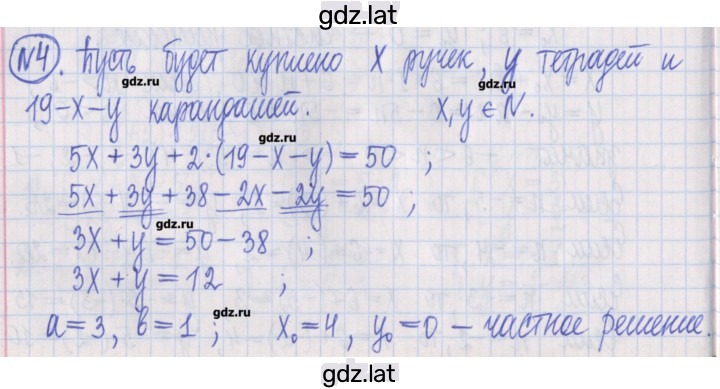 gdz.lat
№4. Пусть будет куплено x ручек, y тетрадей и
gdz.ru
19-x-y карандашей. x, y ∈ N.
gdz.ru
5x + 3y + 2·(19-x-y) = 50 ;
5x + 3y + 38 - 2x - 2y = 50 ;
gdz.ru
3x + y = 50 - 38 ;
3x + y = 12 ;
gdz.ru
a = 3, b = 1 ; x₀ = 4, y₀ = 0 - частное решение.
gdz.lat